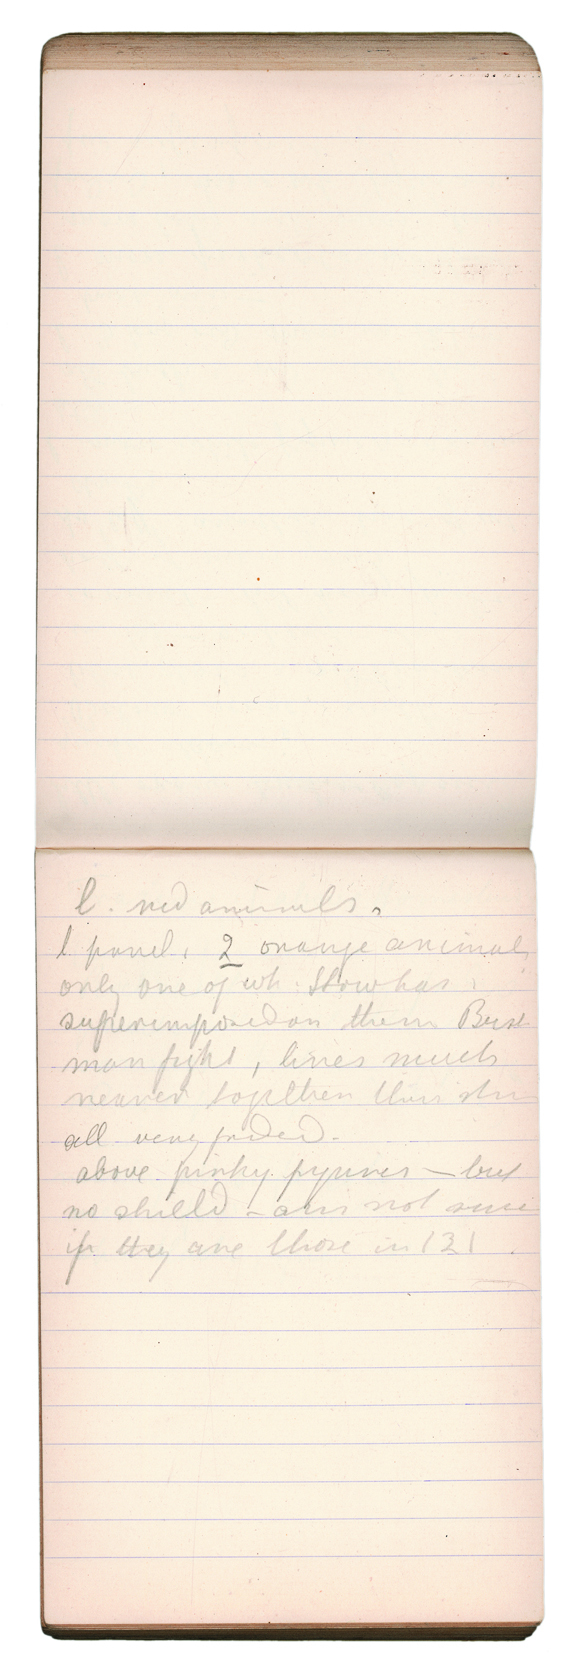 l. red animals.
l panel. 2 orange animals
only one of wh: Stow has.
superimposed on them Bush
man fight, lines much
nearer together than
all very faded.
above pinky figures — but
no shield - am not sure
if they are those in 131.